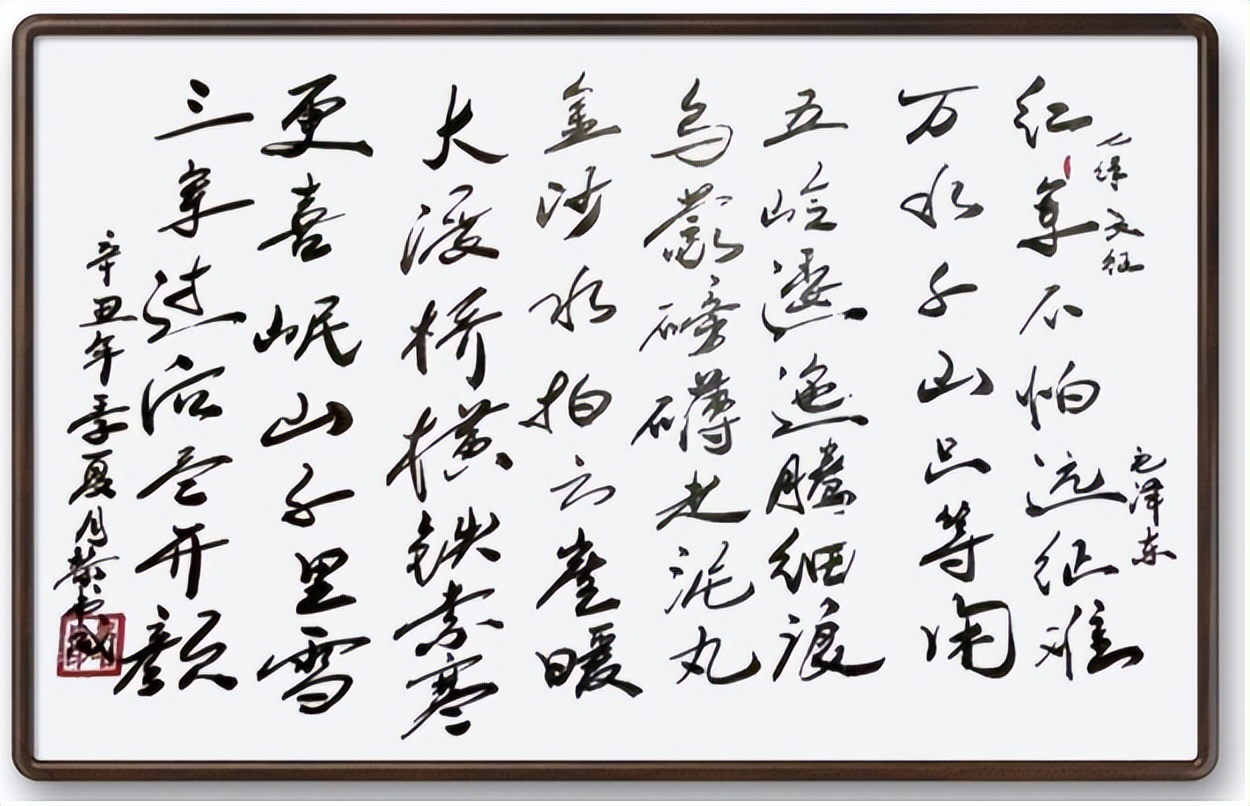 七律 长征
毛泽东
红军不怕远征难
万水千山只等闲
五岭逶迤腾细浪
乌蒙磅礴走泥丸
金沙水拍云崖暖
大渡桥横铁索寒
更喜岷山千里雪
三军过后尽开颜
辛丑年季夏月